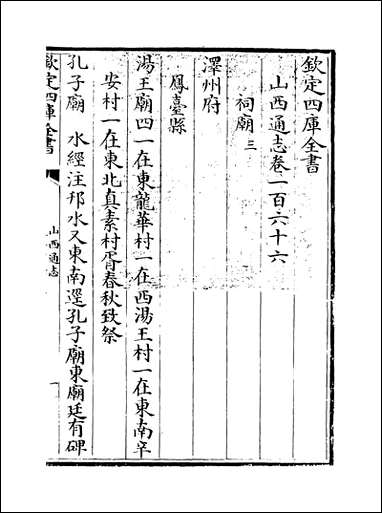 欽定四庫全書
山西通志卷一百六十六
祠廟三
澤州府
鳳臺縣
湯王廟四一在東龍華村一在西湯王村一在東南辛
安村一在東北真素村胥春秋致祭
孔子廟 水經注邗水又東南逕孔子廟東廟廷有碑
欽定四庫全書
山西通志
一